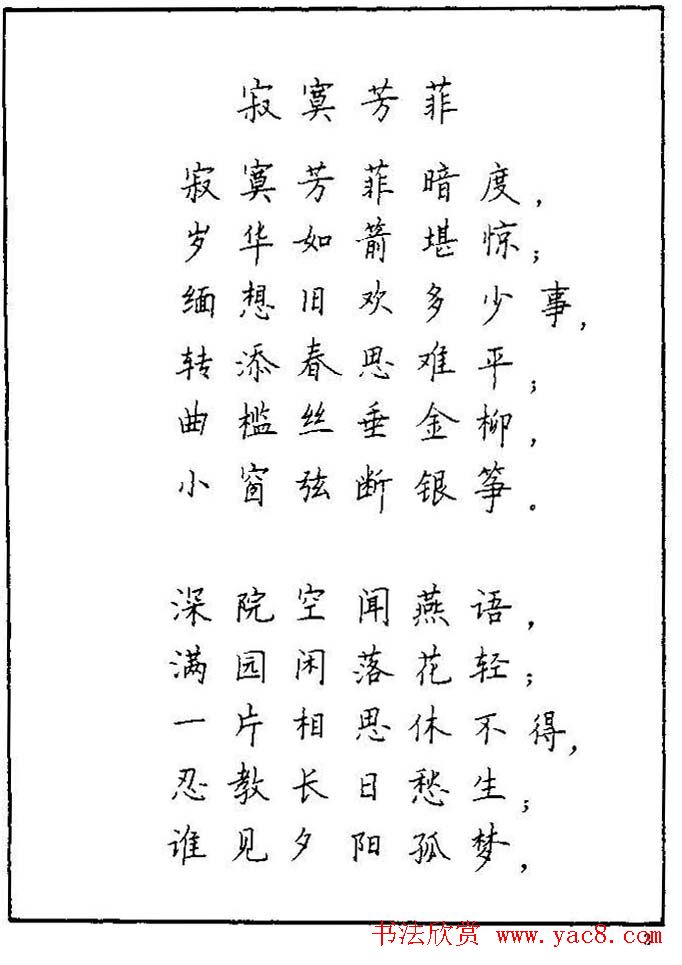 寂寞芳菲
寂寞芳菲暗度，
岁华如箭堪惊；
缅想旧欢多少事，
转添春思难平；
曲槛丝垂金柳，
小窗弦断银筝。
深院空闻燕语，
满园闲落花轻；
一片相思休不得，
忍教长日愁生；
谁见夕阳孤梦，
书法欣赏 www.yac8.com